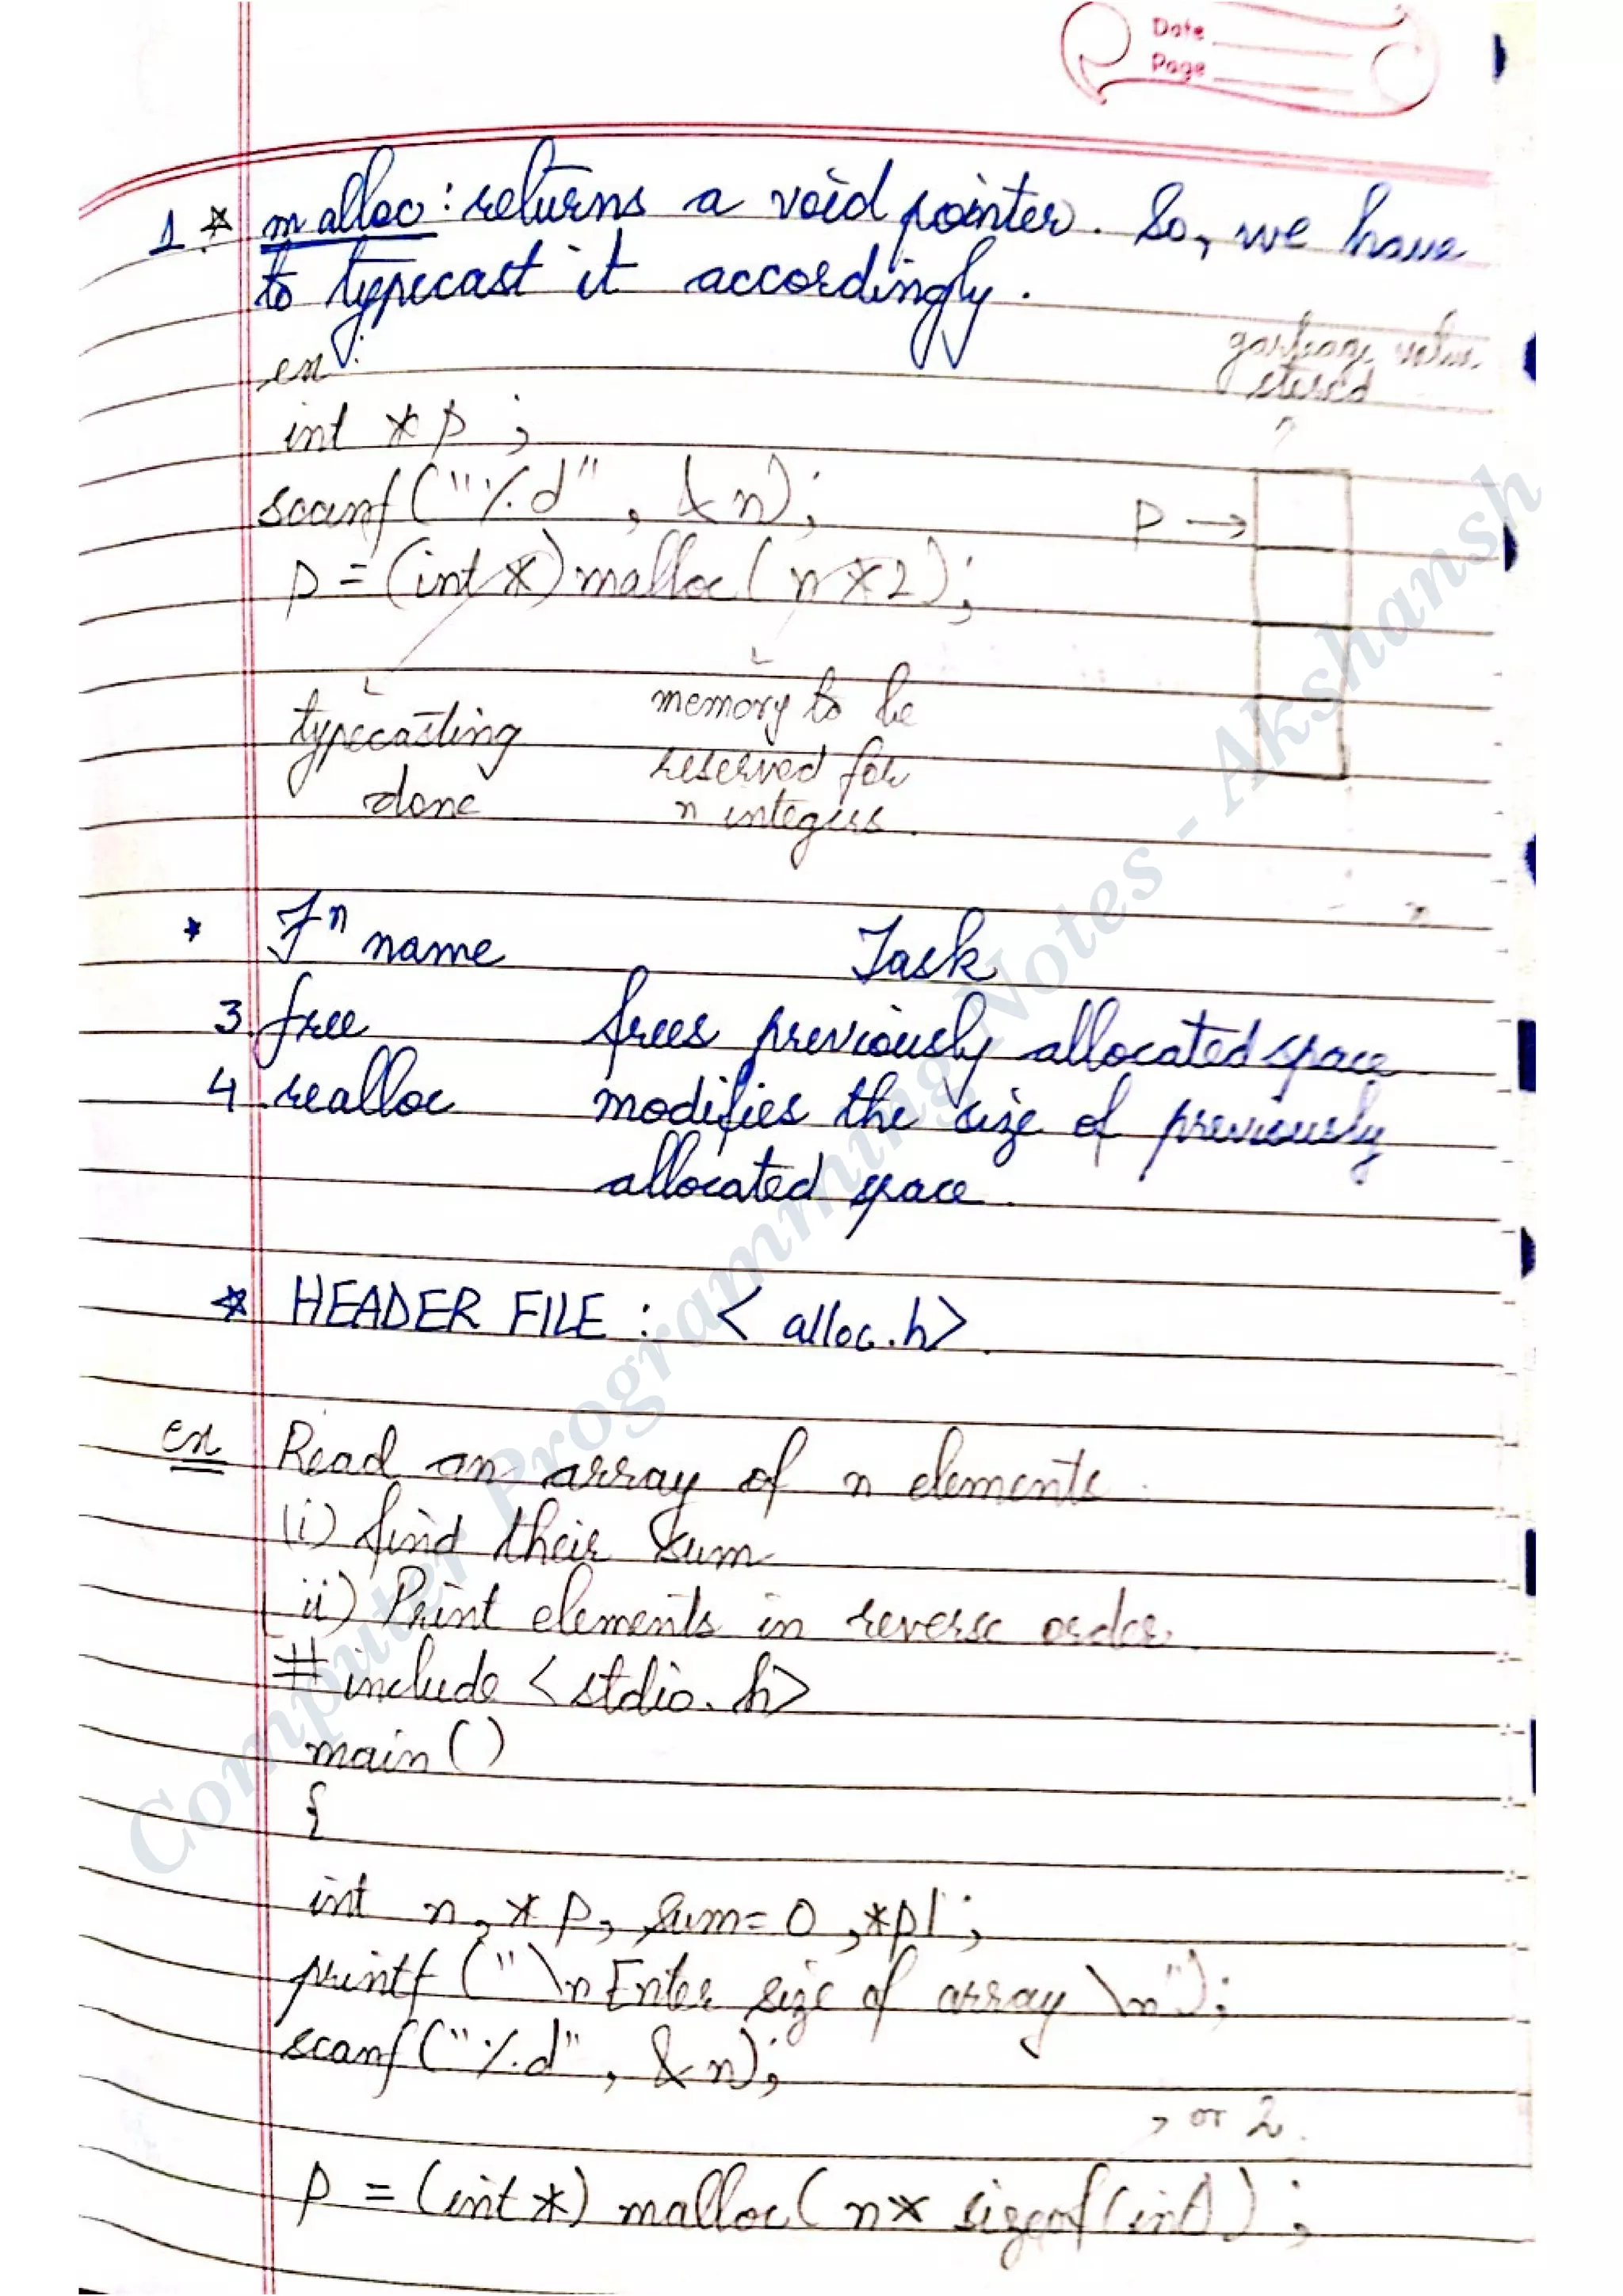 Date
Page
1 * malloc : returns a void pointer. So, we have
to typecast it accordingly.
ex :
garbage value
stored
int *p ;
scanf ("%d" , &n);
p →
p = (int *) malloc ( n *2);
typecasting
done
memory to be
reserved for
n integers.
* Fⁿ name Task
3. free frees previously allocated space
4. realloc modifies the size of previously
allocated space.
* HEADER FILE : < alloc.h>.
ex Read an array of n elements
(i) find their sum
ii) Print elements in reverse order.
#include <stdio.h>
main ()
{
int n, *p, sum=0 ,*p1 ;
printf ("\n Enter size of array \n");
scanf ("%d" , &n);
, or 2.
p = (int *) malloc ( n* sizeof (int) ) ;
Computer Programming Notes - Akshansh